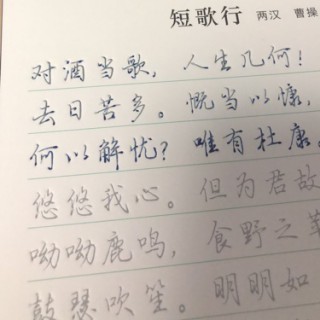 短歌行 两汉 曹操
对酒当歌，人生几何！
去日苦多。慨当以慷，
何以解忧？唯有杜康。
悠悠我心。但为君故
呦呦鹿鸣，食野之苹
鼓瑟吹笙。明明如